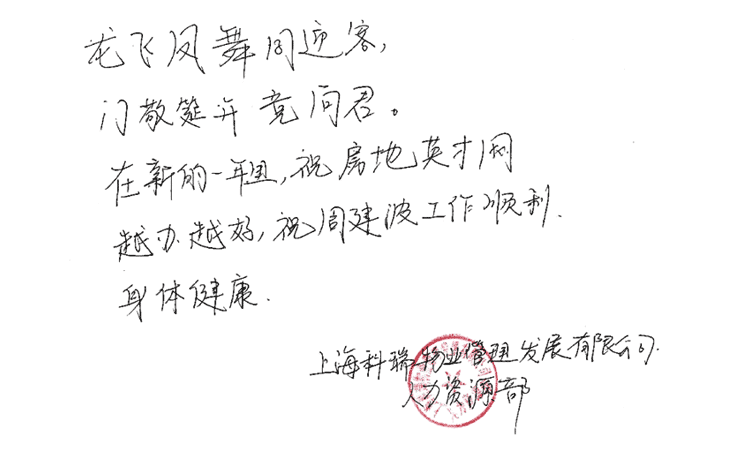 龙飞凤舞同迎客,
门敬筵开竞向君。
在新的一年里,祝房地英才网
越办越好,祝周建波工作顺利.
身体健康.
上海科瑞物业管理发展有限公司.
人力资源部